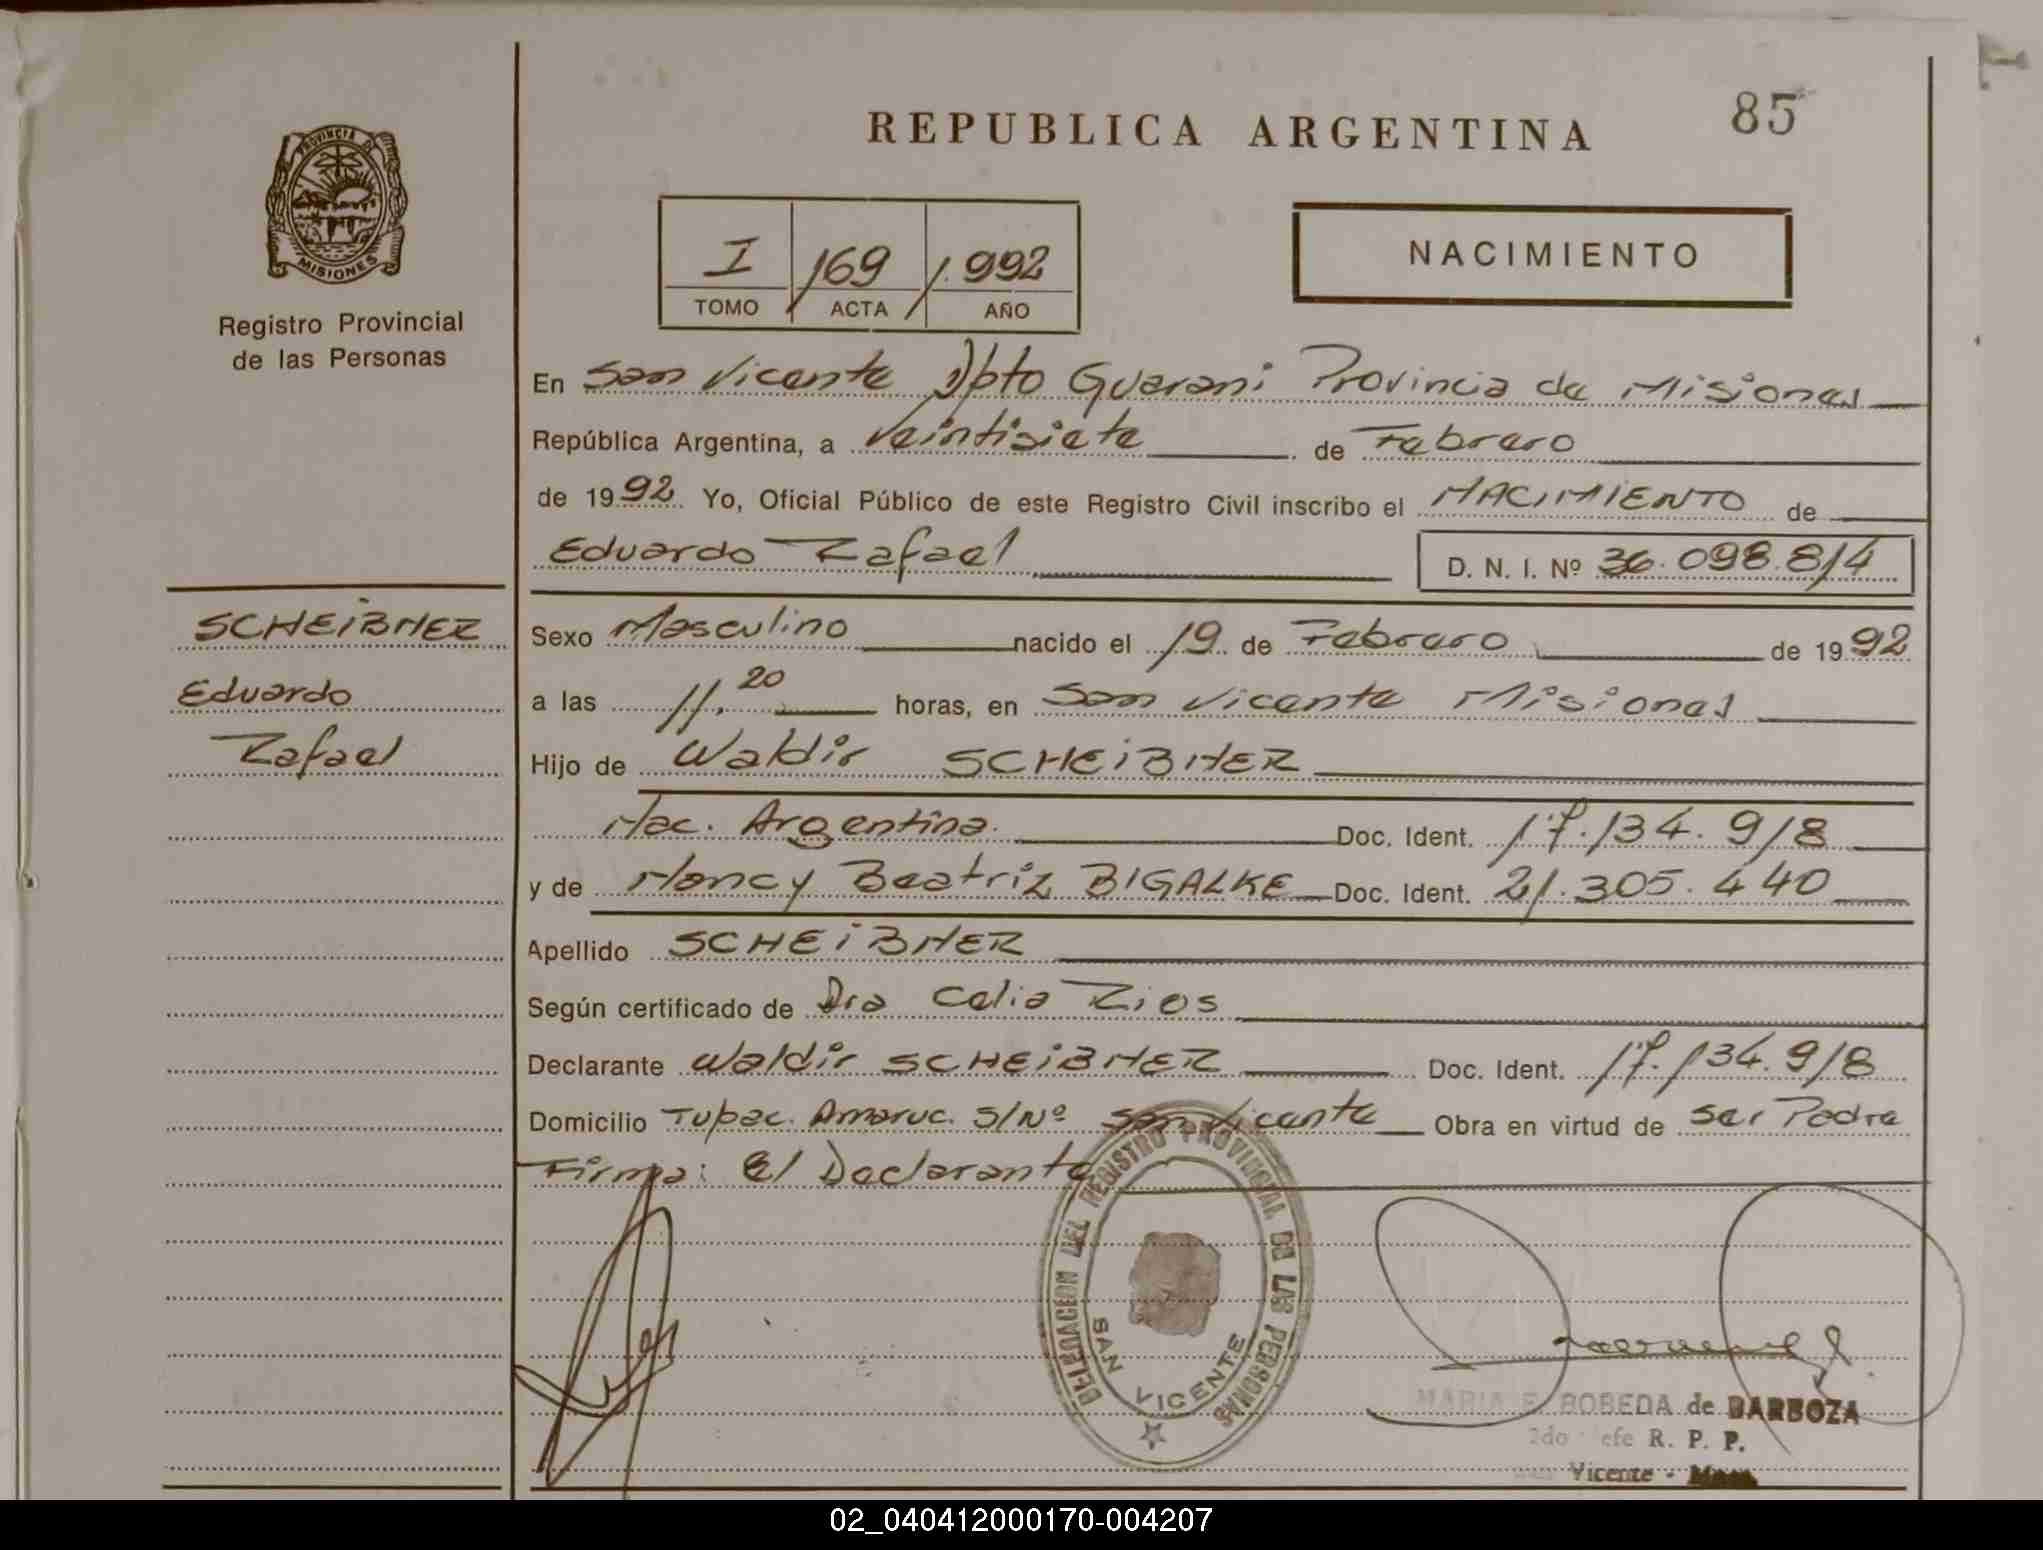 REPUBLICA ARGENTINA
85
PROVINCIA DE
MISIONES
Registro Provincial
de las Personas
I 169 1.992
TOMO ACTA AÑO
NACIMIENTO
En San Vicente Dpto Guarani Provincia de Misiones
República Argentina, a Veintisiete de Febrero
de 1992. Yo, Oficial Público de este Registro Civil inscribo el NACIMIENTO de
Eduardo Rafael D. N. I. Nº 36.098.814
SCHEiBNER
Eduardo
Rafael
Sexo Masculino nacido el 19 de Febrero de 1992
a las 11.20 horas, en San Vicente Misiones
Hijo de Waldir SCHEiBNER
Nac. Argentina. Doc. Ident. 17.134.918
y de Nancy Beatriz BIGALKE Doc. Ident. 21.305.440
Apellido SCHEiBNER
Según certificado de Dra Celia Rios
Declarante Waldir SCHEiBNER Doc. Ident. 17.134.918
Domicilio Tupac. Amaruc. S/Nº San Vicente Obra en virtud de ser Padre
Firma: El Declarante
DELEGACION DEL REGISTRO PROVINCIAL DE LAS PERSONAS
SAN VICENTE
MARIA E. BOBEDA de BARBOZA
2do Jefe R. P. P.
Vicente -
02_040412000170-004207